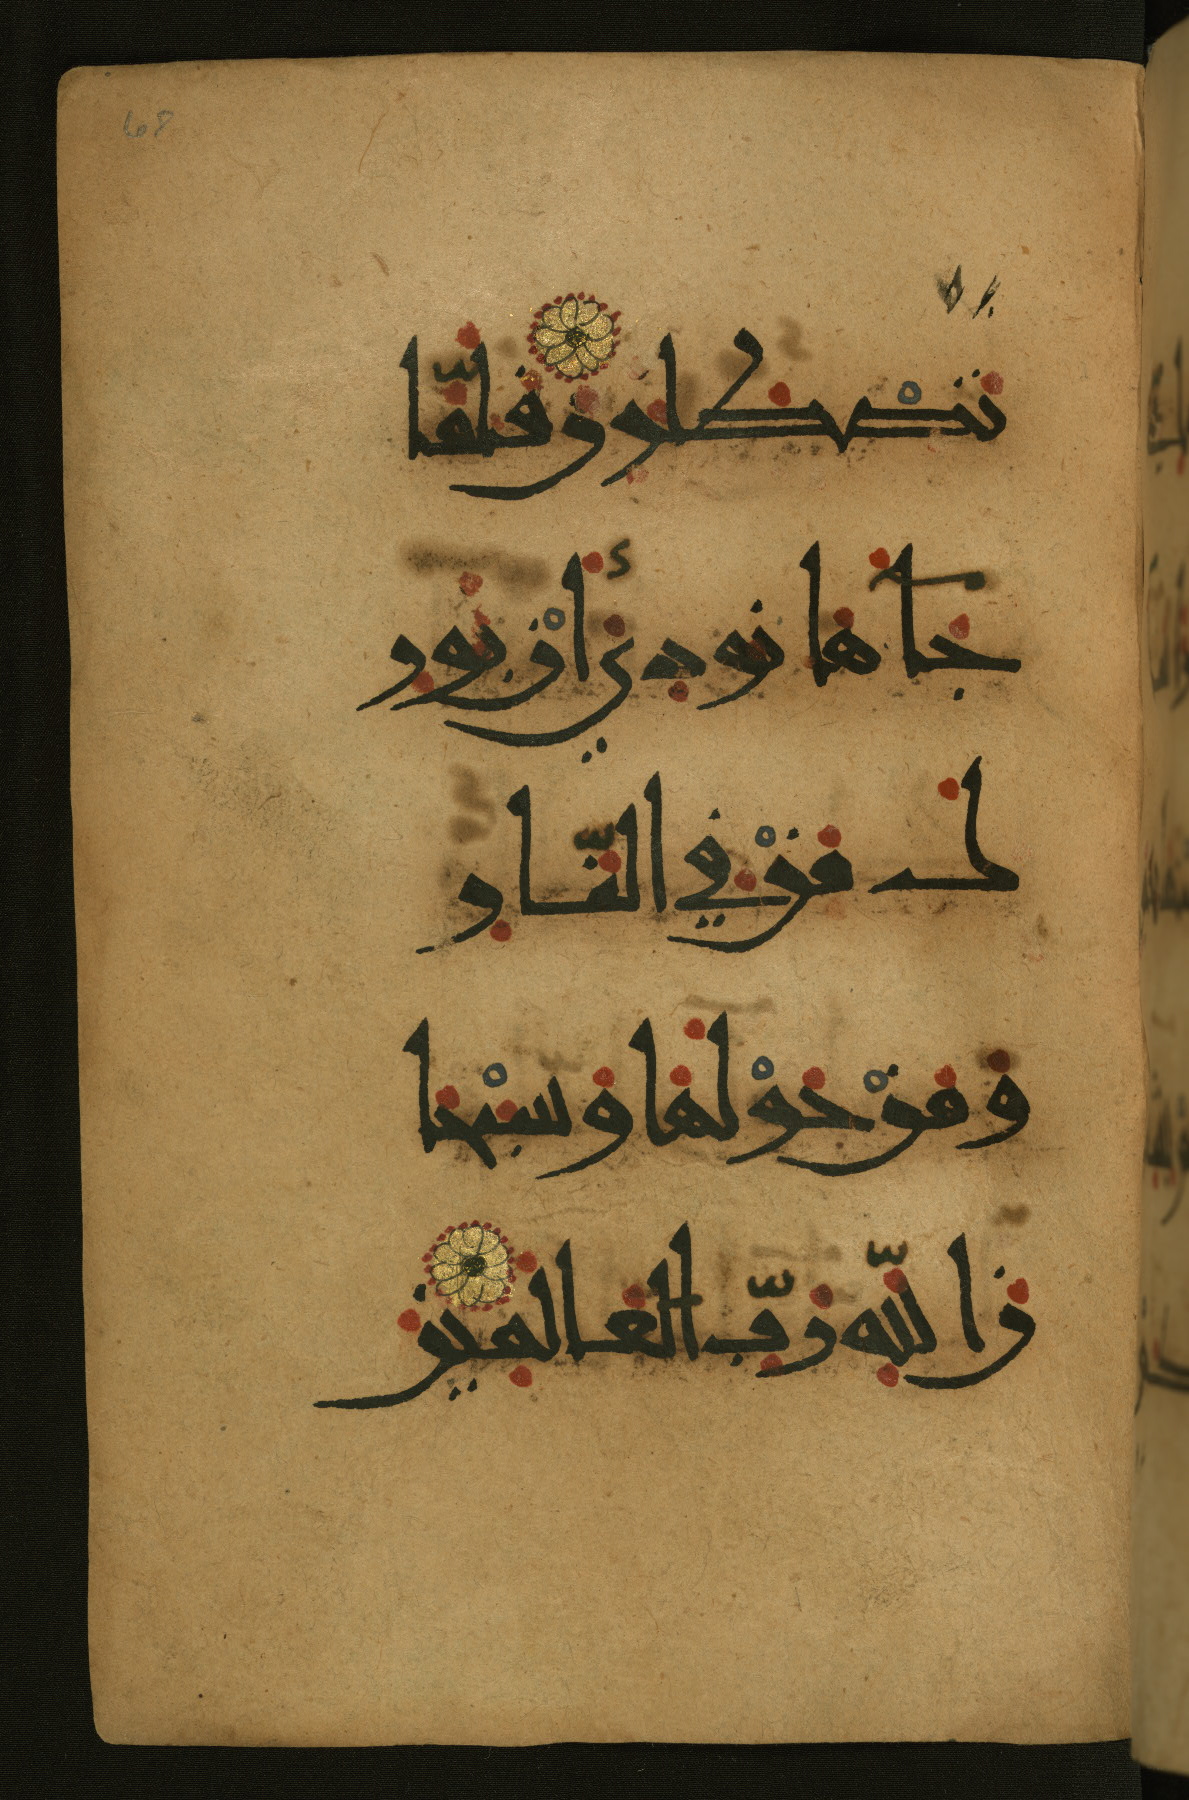 68
تصطلون فلمّا
جآءها نودي أن بور
ك من في النّار
و من حولها و سبحا
ن اللّه ربّ العالمين